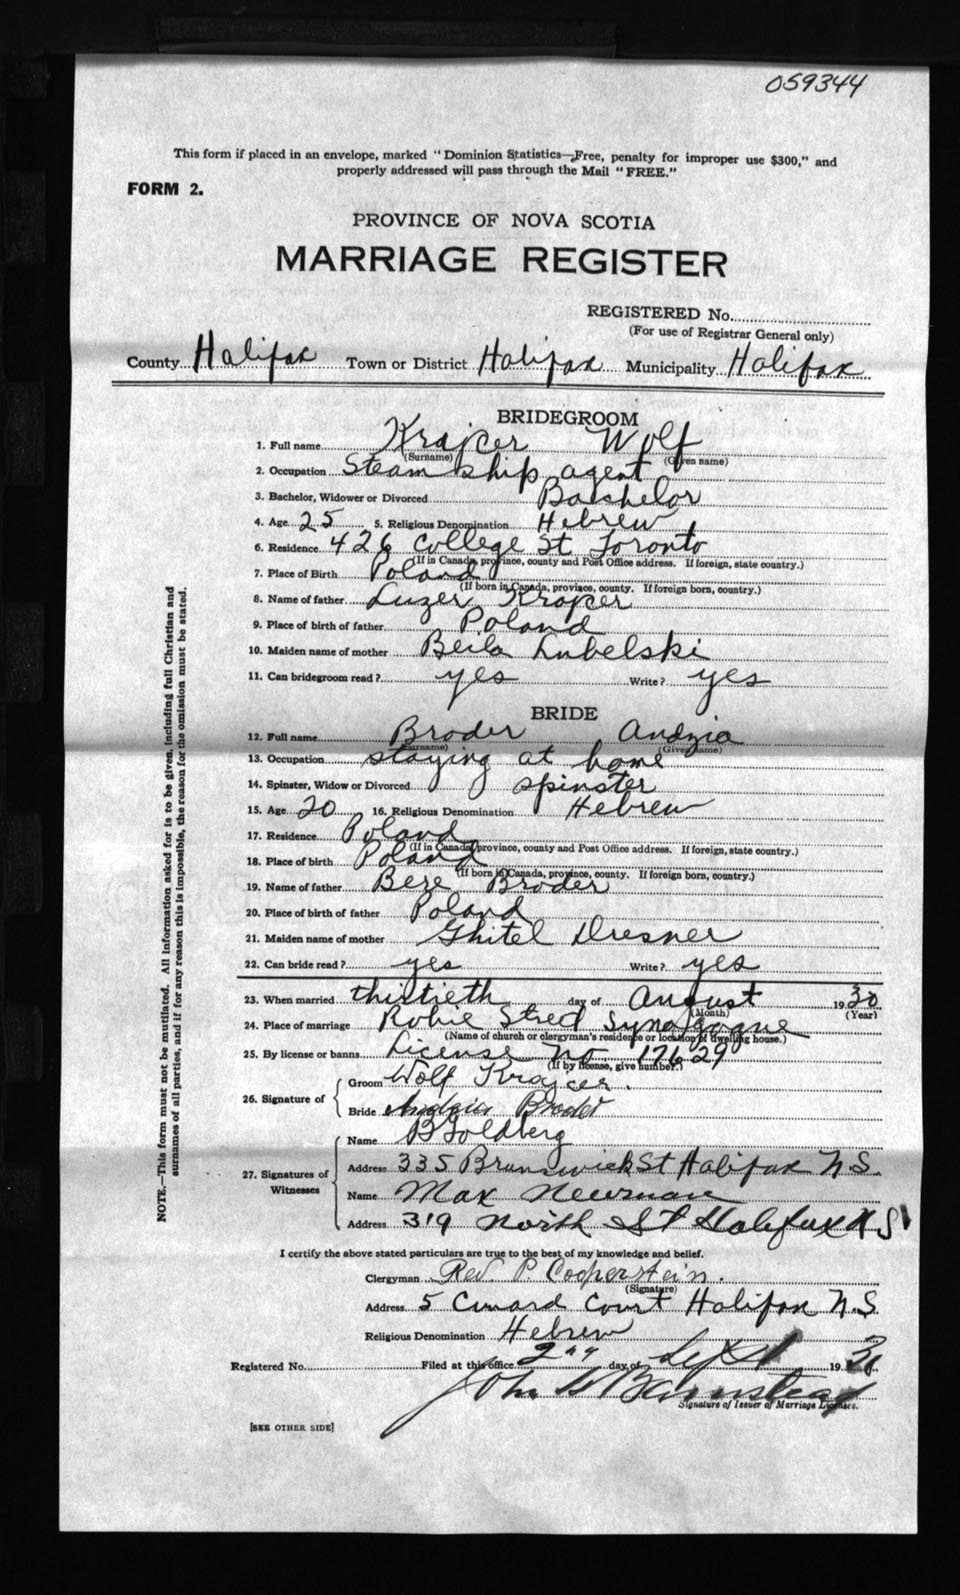 059344
This form if placed in an envelope, marked "Dominion Statistics—Free, penalty for improper use $300," and
properly addressed will pass through the Mail "FREE."
FORM 2.
PROVINCE OF NOVA SCOTIA
MARRIAGE REGISTER
REGISTERED No.
(For use of Registrar General only)
County Halifax Town or District Halifax Municipality Halifax
BRIDEGROOM
1. Full name Krajcer Wolf
(Surname) (Given name)
2. Occupation Steam ship agent
3. Bachelor, Widower or Divorced Bachelor
4. Age 25 5. Religious Denomination Hebrew
6. Residence 426 College St Toronto
(If in Canada, province, county and Post Office address. If foreign, state country.)
7. Place of Birth Poland
(If born in Canada, province, county. If foreign born, country.)
8. Name of father Luzer Krajcer
9. Place of birth of father Poland
10. Maiden name of mother Beila Lubelski
11. Can bridegroom read? yes Write? yes
BRIDE
12. Full name Broder Andzia
(Surname) (Given name)
13. Occupation staying at home
14. Spinster, Widow or Divorced spinster
15. Age 20 16. Religious Denomination Hebrew
17. Residence Poland
(If in Canada, province, county and Post Office address. If foreign, state country.)
18. Place of birth Poland
(If born in Canada, province, county. If foreign born, country.)
19. Name of father Bere Broder
20. Place of birth of father Poland
21. Maiden name of mother Ghitel Dresner
22. Can bride read? yes Write? yes
23. When married thirtieth day of August 1930
(Month) (Year)
24. Place of marriage Robie Street Synagogue
(Name of church or clergyman's residence or location of dwelling house.)
25. By license or banns License No 17629
(If by license, give number.)
26. Signature of
Groom Wolf Krajcer.
Bride Andzia Broder
27. Signatures of Witnesses
Name B Goldberg
Address 335 Brunswick St Halifax N.S.
Name Max Newman
Address 319 North St Halifax N S
I certify the above stated particulars are true to the best of my knowledge and belief.
Clergyman Rev. P. Cooperstein.
(Signature)
Address 5 Cunard Court Halifax N.S
Religious Denomination Hebrew
Registered No. Filed at this office 2nd day of Sept 1930
John Barnstead
Signature of Issuer of Marriage Licenses.
[SEE OTHER SIDE]
NOTE.—This form must not be mutilated. All information asked for is to be given, including full Christian and
surnames of all parties, and if for any reason this is impossible, the reason for the omission must be stated.